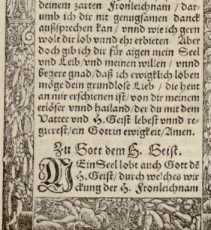 deinem zarten Fronleichnam / dar-
umb ich dir nit genugsamen danck
außsprechen kan / vnnd wie ich gern
wolt dir lob vand ehr erdieten / Aber
doch gib ich dir für aigen mein Seel
vnd Leib / vnd meinen willen / vnnd
begere gnad / daß ich ewigklich loben
möge dein grundlose Lieb / die heut
an mir erschienen ist / von dir meinem
erlöser vnnd hailand / der du mit dem
Vatter vnd H. Geist lebest vnnd re-
gierest / ein Gott in ewigkeit / Amen.
Zu Gott dem H. Geist.
MEin Seel lobt auch Gott dē
H. Geist / durch welches wir
ckung der H. Fronleichnam